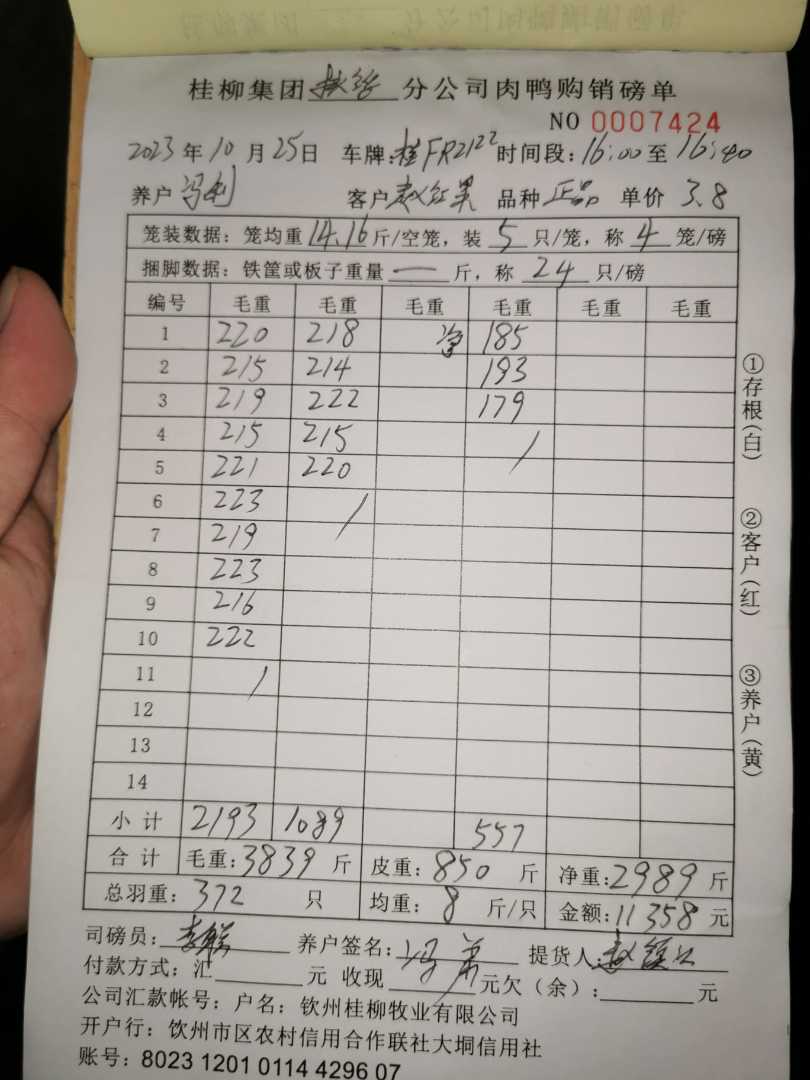 桂柳集团 分公司肉鸭购销磅单
NO 0007424
2023年10月25日 车牌:桂FR2122 时间段:16:00至16:40
养户 冯利 客户 赵红 品种 正品 单价 3.8
笼装数据：笼均重14.16斤/空笼，装5只/笼，称4笼/磅
捆脚数据：铁筐或板子重量 — 斤，称24只/磅
编号 毛重 毛重 毛重 毛重 毛重 毛重
1 220 218 净 185
2 215 214 193
3 219 222 179
4 215 215 /
5 221 220
6 223 /
7 219
8 223
9 216
10 222
11 /
12
13
14
小计 2193 1089 557
合计 毛重:3839斤 皮重:850斤 净重:2989斤
总羽重:372只 均重:8斤/只 金额:11358元
司磅员: 养户签名:冯 提货人:赵
付款方式：汇 元 收现 元欠（余）: 元
公司汇款帐号：户名：钦州桂柳牧业有限公司
开户行：钦州市区农村信用合作联社大垌信用社
账号：8023 1201 0114 4296 07
①存根(白)
②客户(红)
③养户(黄)